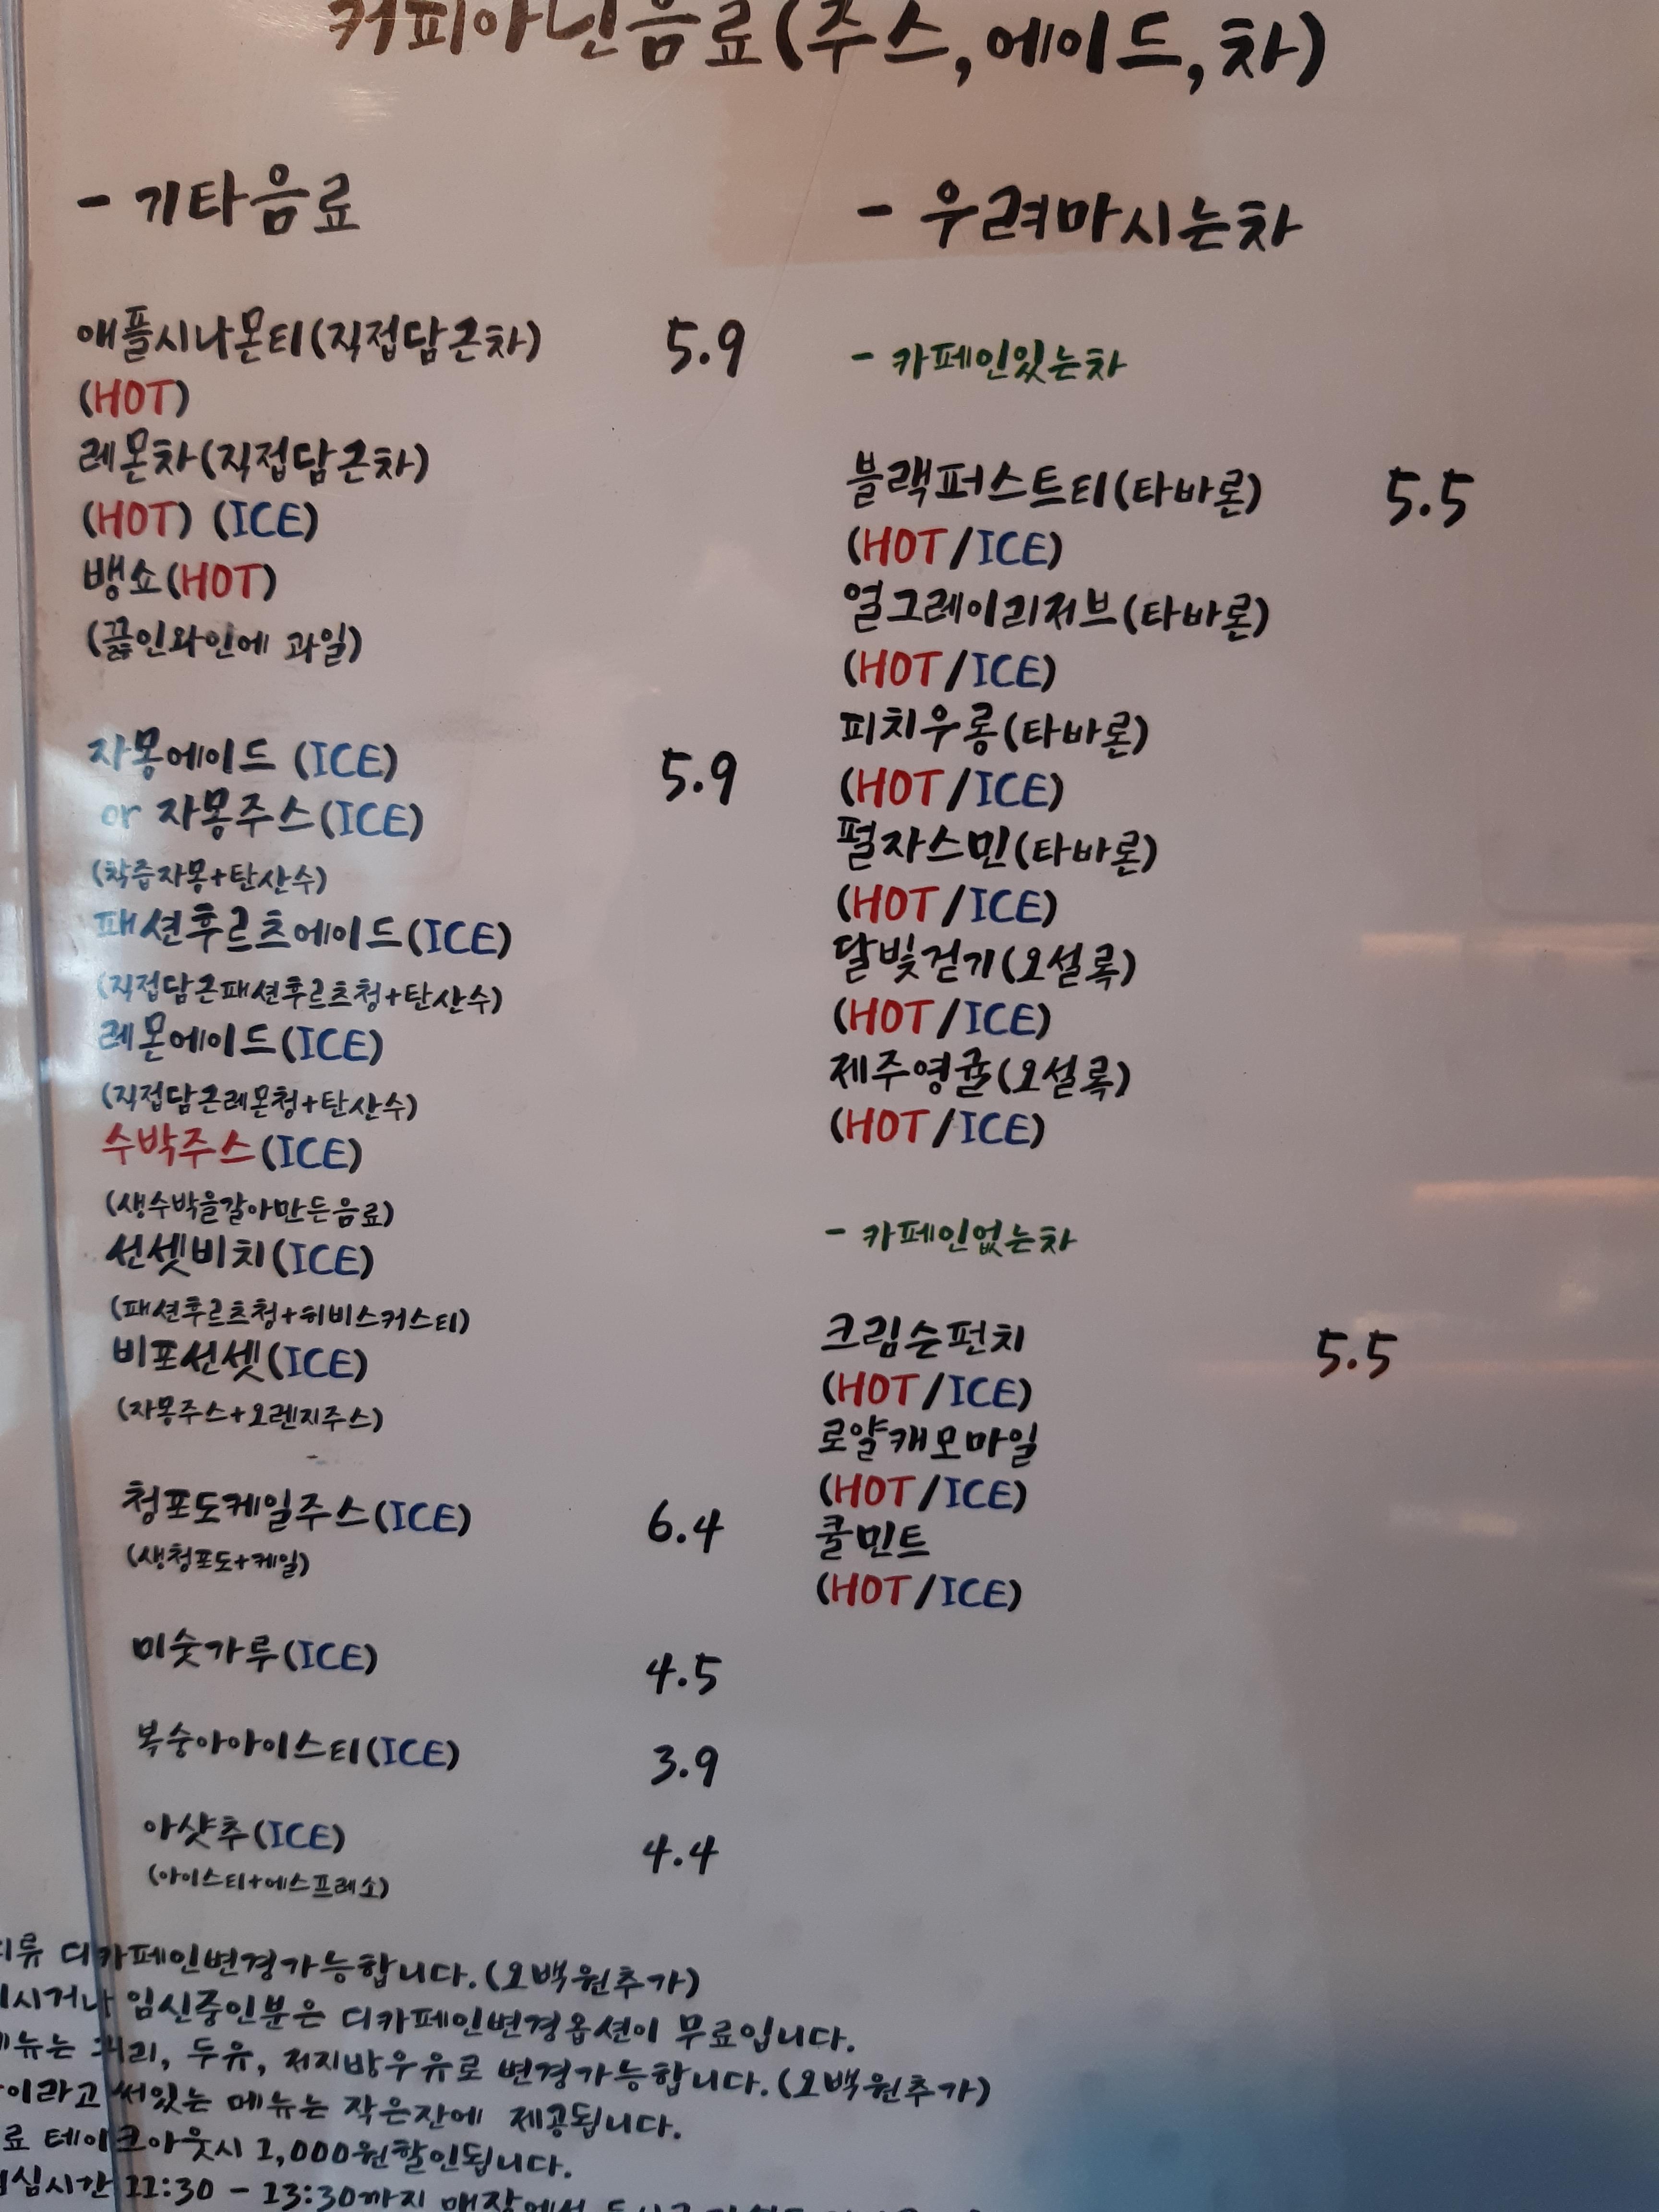 커피아닌음료(주스,에이드,차)
- 기타음료
애플시나몬티(직접담근차) 5.9
(HOT)
레몬차(직접담근차)
(HOT) (ICE)
뱅쇼(HOT)
(끓인와인에 과일)
자몽에이드 (ICE) 5.9
or 자몽주스(ICE)
(착즙자몽+탄산수)
패션후르츠에이드(ICE)
(직접담근패션후르츠청+탄산수)
레몬에이드(ICE)
(직접담근레몬청+탄산수)
수박주스(ICE)
(생수박을갈아만든음료)
선셋비치(ICE)
(패션후르츠청+히비스커스티)
비포선셋(ICE)
(자몽주스+오렌지주스)
청포도케일주스(ICE) 6.4
(생청포도+케일)
미숫가루(ICE) 4.5
복숭아아이스티(ICE) 3.9
아샷추(ICE) 4.4
(아이스티+에스프레소)
- 우려마시는차
- 카페인있는차
블랙퍼스트티(타바론) 5.5
(HOT/ICE)
얼그레이리저브(타바론)
(HOT/ICE)
피치우롱(타바론)
(HOT/ICE)
펄자스민(타바론)
(HOT/ICE)
달빛걷기(오설록)
(HOT/ICE)
제주영귤(오설록)
(HOT/ICE)
- 카페인없는차
크림슨펀치 5.5
(HOT/ICE)
로얄캐모마일
(HOT/ICE)
쿨민트
(HOT/ICE)
디카페인변경가능합니다.(오백원추가)
임신중인분은 디카페인변경옵션이 무료입니다.
두유, 저지방우유로 변경가능합니다.(오백원추가)
이라고 써있는 메뉴는 작은잔에 제공됩니다.
료 테이크아웃시 1,000원할인됩니다.
심시간 11:30 - 13:30까지 매장에서